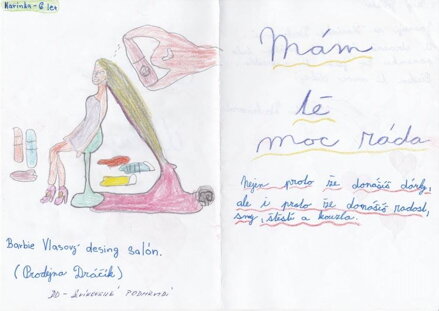 Karinka - 6 let
Barbie Vlasový desing salón.
(Prodejna Dráčik)
Mám
tě
moc ráda
Nejen proto že donášíš dárky,
ale i proto že donášíš radost,
sny, štěstí a kouzla.